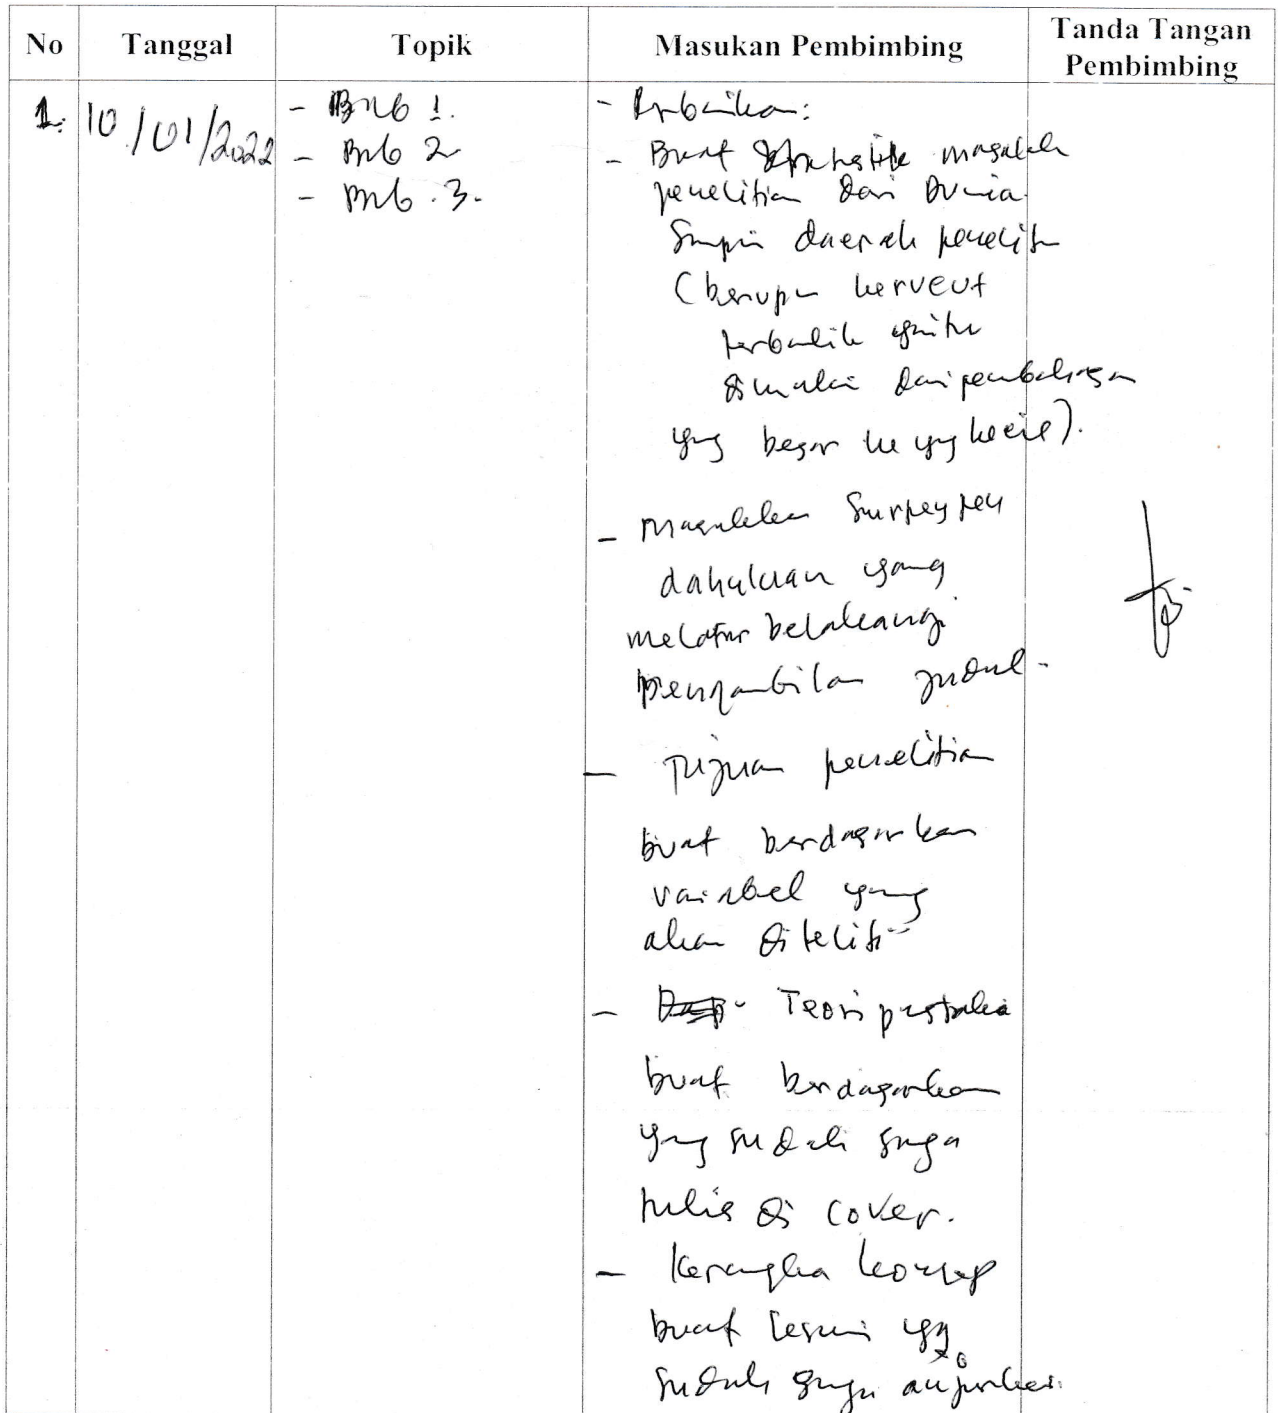 No Tanggal Topik Masukan Pembimbing Tanda Tangan Pembimbing
1. 10/01/2022
- Bab 1.
- Bab 2
- Bab 3.
- Perbaikan:
- Buat masalah
penelitian dari Dunia
Sampai daerah peneliti
(berupa kerucut
terbalik yaitu
dimulai dari pembahasan
yang besar ke yg kecil).
- Masukkan Survey pen
dahuluan yang
melatar belakangi
pengambilan judul.
- Tujuan penelitian
buat berdasarkan
variabel yang
akan diteliti
- Teori pustaka
buat berdasarkan
yang sudah saya
tulis di cover.
- Kerangka konsep
buat sesuai yg
sudah saya anjurkan.